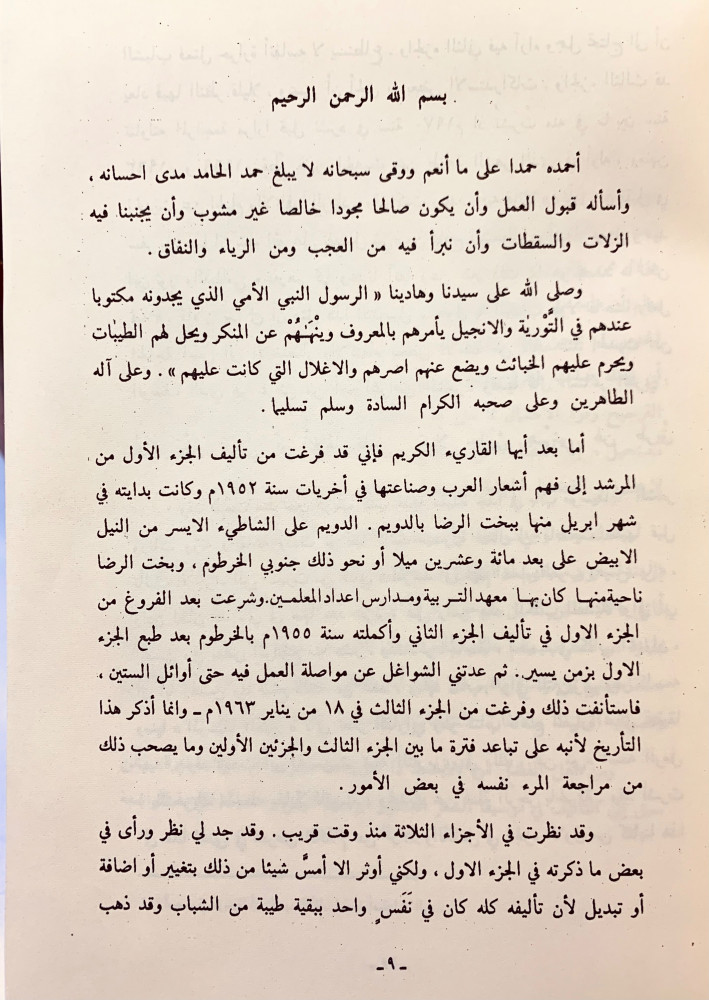 بسم الله الرحمن الرحيم
أحمده حمدا على ما أنعم ووقى سبحانه لا يبلغ حمد الحامد مدى احسانه ،
وأسأله قبول العمل وأن يكون صالحا مجودا خالصا غير مشوب وأن يجنبنا فيه
الزلات والسقطات وأن نبرأ فيه من العجب ومن الرياء والنفاق .
وصلى الله على سيدنا وهادينا « الرسول النبي الأمي الذي يجدونه مكتوبا
عندهم في التَّوْرىٰة والانجيل يأمرهم بالمعروف وينْهَـٰهُمْ عن المنكر ويحل لهم الطيبٰات
ويحرم عليهم الخبائث ويضع عنهم اصرهم والاغلال التي كانت عليهم » . وعلى آله
الطاهرين وعلى صحبه الكرام السادة وسلم تسليما .
أما بعد أيها القاريء الكريم فإني قد فرغت من تأليف الجزء الأول من
المرشد إلى فهم أشعار العرب وصناعتها في أخريات سنة ١٩٥٢م وكانت بدايته في
شهر ابريل منها ببخت الرضا بالدويم . الدويم على الشاطيء الايسر من النيل
الابيض على بعد مائة وعشرين ميلا أو نحو ذلك جنوبي الخرطوم ، وبخت الرضا
ناحية منهـا كان بهـا معهد التـربية ومـدارس اعداد المعلمـين . وشرعت بعد الفروغ من
الجزء الاول في تأليف الجزء الثاني وأكملته سنة ١٩٥٥م بالخرطوم بعد طبع الجزء
الاول بزمن يسير .. ثم عدتني الشواغل عن مواصلة العمل فيه حتى أوائل الستين ،
فاستأنفت ذلك وفرغت من الجزء الثالث في ١٨ من يناير ١٩٦٣م ـ وانما أذكر هذا
التأريخ لأنبه على تباعد فترة ما بين الجزء الثالث والجزئين الأولين وما يصحب ذلك
من مراجعة المرء نفسه في بعض الأمور .
وقد نظرت في الأجزاء الثلاثة منذ وقت قريب . وقد جد لي نظر ورأى في
بعض ما ذكرته في الجزء الاول ، ولكني أوثر الا أمسَّ شيئا من ذلك بتغيير أو اضافة
أو تبديل لأن تأليفه كله كان في نَفَسٍ واحد ببقية طيبة من الشباب وقد ذهب
ـ ٩ ـ